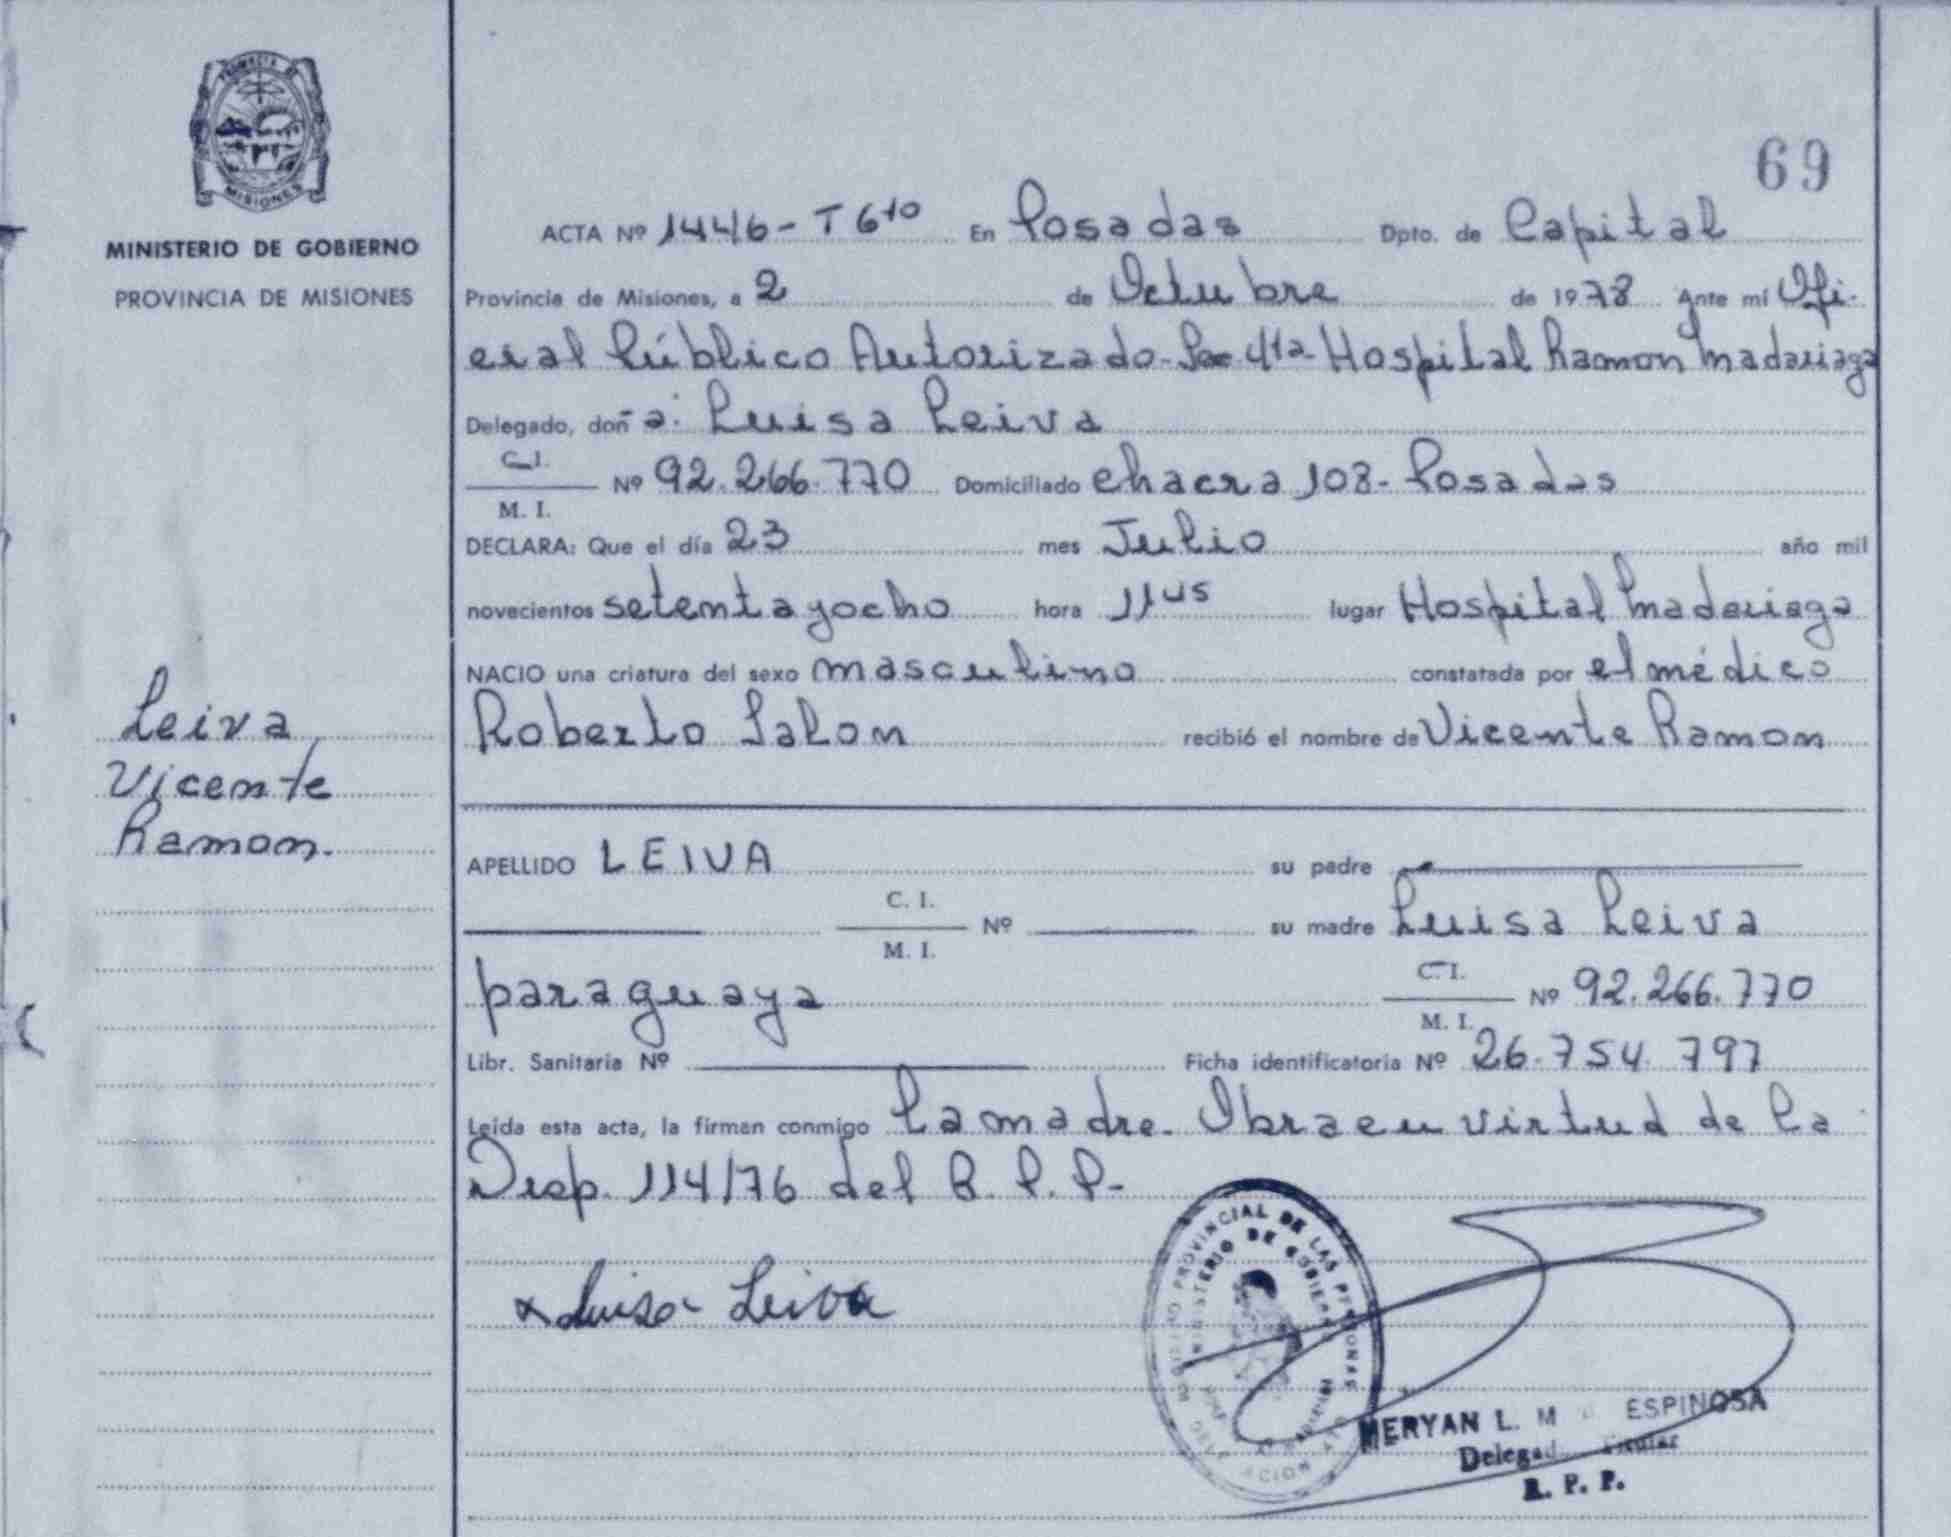 PROVINCIA DE
MISIONES
MINISTERIO DE GOBIERNO
PROVINCIA DE MISIONES
69
ACTA Nº 1446-T 6to En Posadas Dpto. de Capital
Provincia de Misiones, a 2 de Octubre de 1978 Ante mí Ofi-
cial Público Autorizado-Sec 4ta-Hospital Ramon Madariaga
Delegado, doñ-a: Luisa Leiva
C.I.
M. I.
Nº 92.266.770 Domiciliado chacra 108-Posadas
DECLARA: Que el día 23 mes Julio año mil
novecientos setenta y ocho hora 11 45 lugar Hospital Madariaga
NACIO una criatura del sexo masculino constatada por el médico
Roberto Salon recibió el nombre de Vicente Ramon
Leiva
Vicente
Ramon.
APELLIDO LEIVA su padre
C. I.
M. I.
Nº su madre Luisa Leiva
paraguaya C.I.
M. I.
Nº 92.266.770
Libr. Sanitaria Nº Ficha identificatoria Nº 26.754.797
Leída esta acta, la firman conmigo la madre. Obra en virtud de la
Disp. 114/76 del R.P.P.-
x Luisa Leiva
PROVINCIAL DE LAS PERSONAS
MINISTERIO DE GOBIERNO
MERYAN L. M ESPINOSA
Delegad Titular
R. P. P.